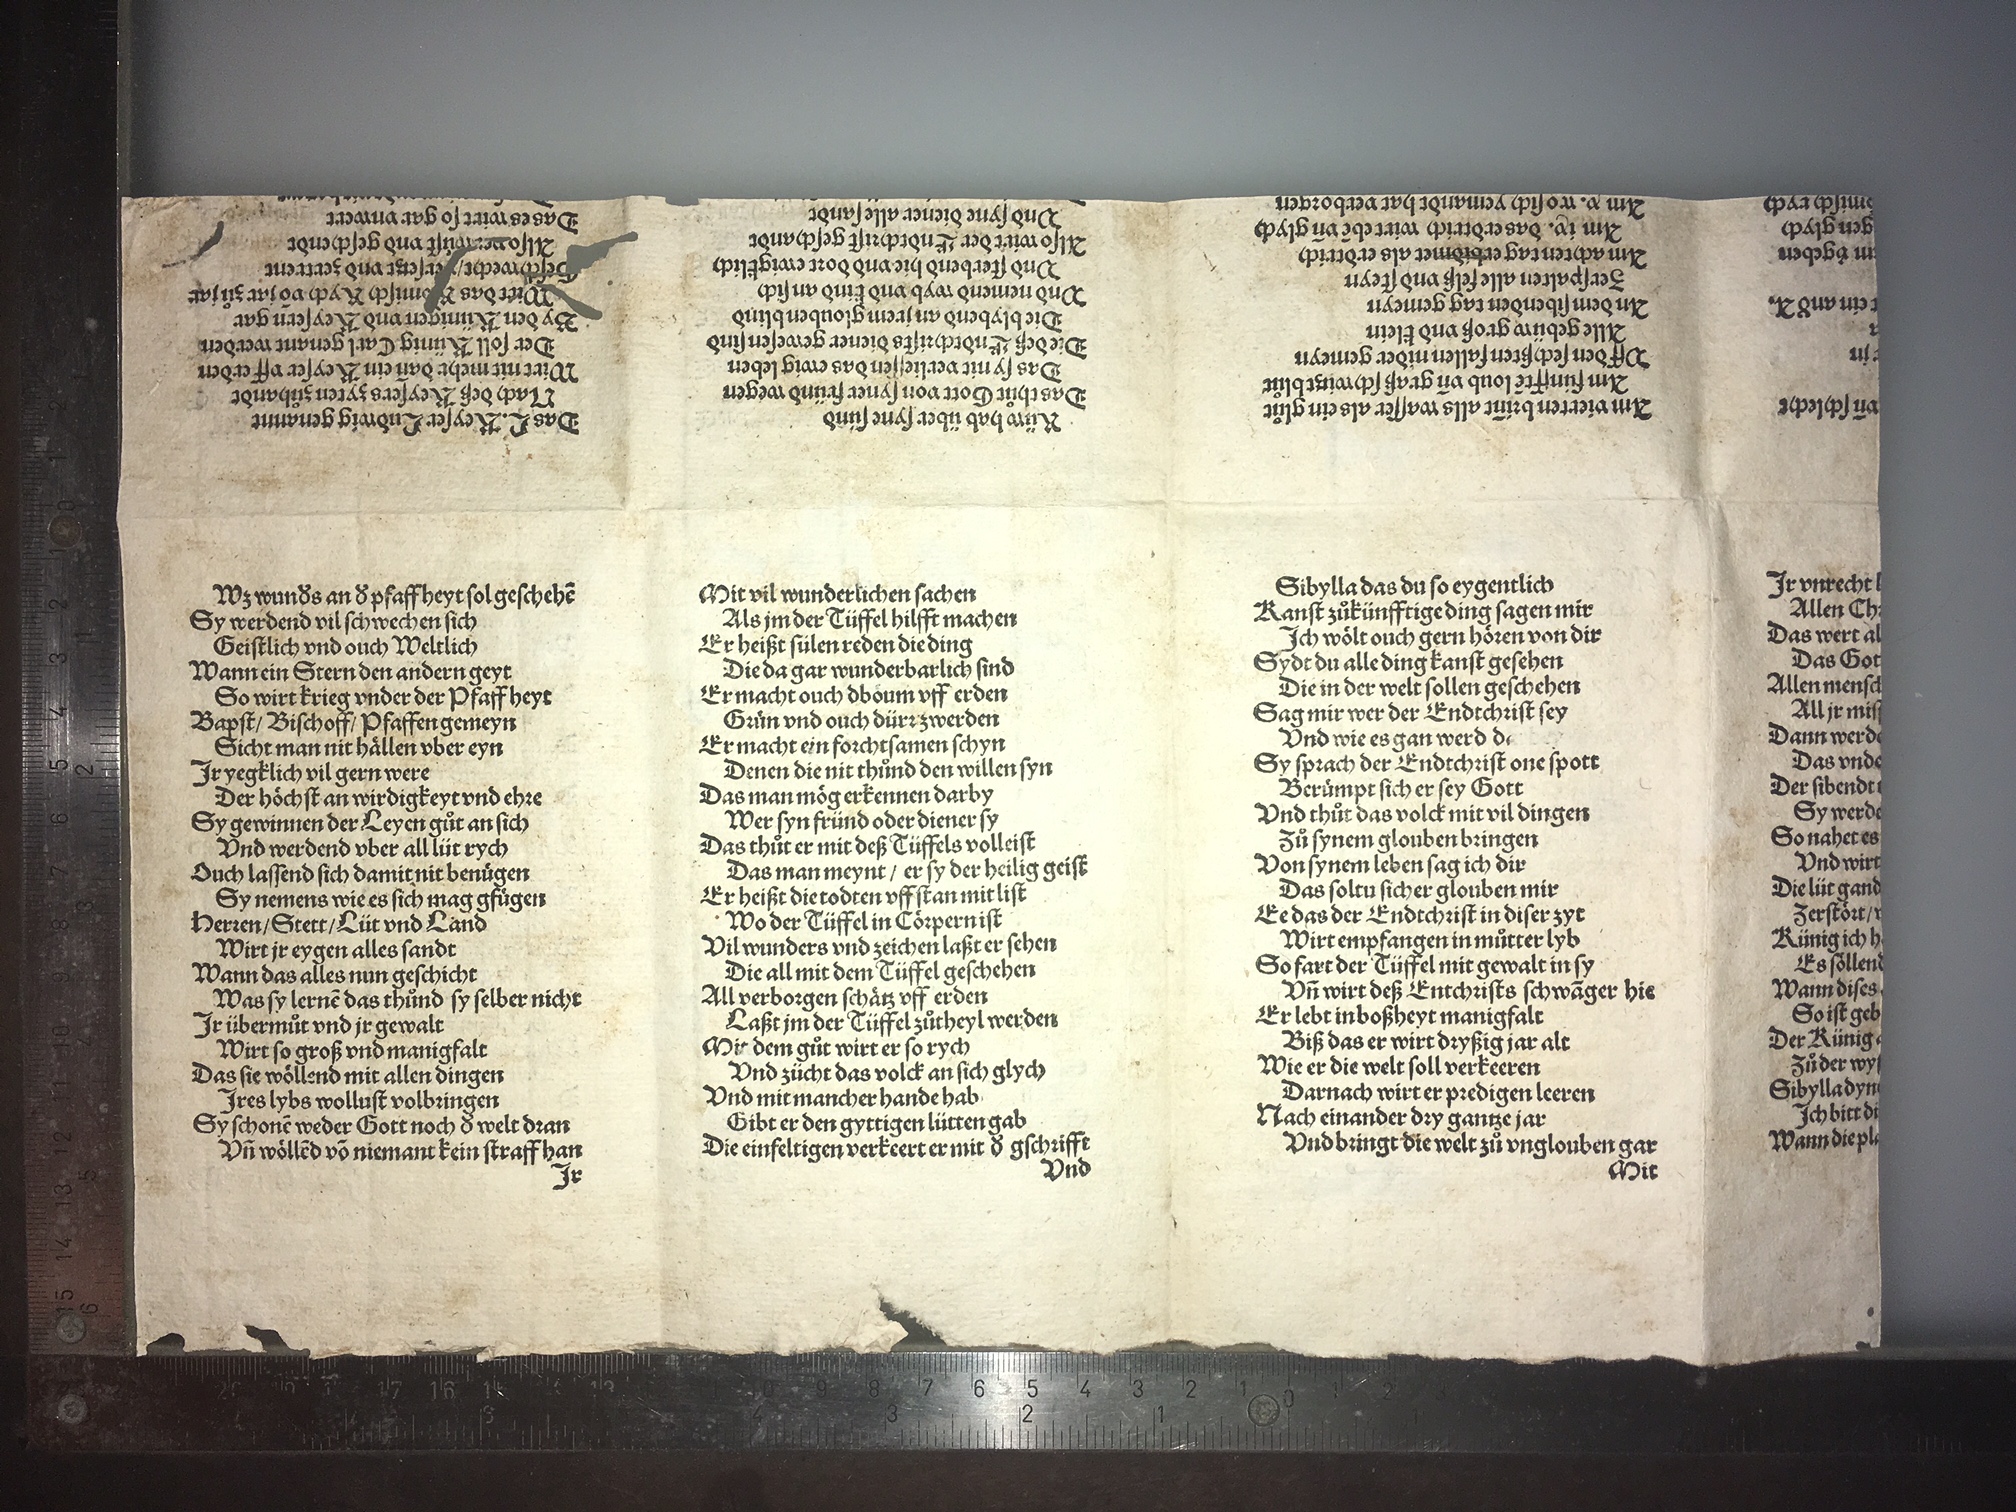 Wz wunds an d pfaffheyt sol geschehē
Sy werdend vil schwechen sich
Geistlich vnd ouch Weltlich
Wann ein Stern den andern geyt
So wirt krieg vnder der Pfaffheyt
Bapst/ Bischoff/ Pfaffen gemeyn
Sicht man nit hällen vber eyn
Jr yegklich vil gern were
Der höchst an wirdigkeyt vnd ehre
Sy gewinnen der Leyen gůt an sich
Vnd werdend vber all lüt rych
Ouch lassend sich damit nit benügen
Sy nemens wie es sich mag gfügen
Herren/ Stett/ Lüt vnd Land
Wirt jr eygen alles sandt
Wann das alles nun geschicht
Was sy lernē das thůnd sy selber nicht
Jr übermůt vnd jr gewalt
Wirt so groß vnd manigfalt
Das sie wöllend mit allen dingen
Jres lybs wollust volbringen
Sy schonē weder Gott noch d welt dran
Vñ wöllēd võ niemant kein straff han
Jr
Mit vil wunderlichen sachen
Als jm der Tüffel hilfft machen
Er heißt sülen reden die ding
Die da gar wunderbarlich sind
Er macht ouch dboum vff erden
Grün vnd ouch dürr zwerden
Er macht ein forchtsamen schyn
Denen die nit thůnd den willen syn
Das man mög erkennen darby
Wer syn fründ oder diener sy
Das thůt er mit deß Tüffels volleist
Das man meynt/ er sy der heilig geist
Er heißt die todten vffstan mit list
Wo der Tüffel in Cörpern ist
Vil wunders vnd zeichen laßt er sehen
Die all mit dem Tüffel geschehen
All verborgen schätz vff erden
Laßt jm der Tüffel zůtheyl werden
Mit dem gůt wirt er so rych
Vnd zücht das volck an sich glych
Vnd mit mancher hande hab
Gibt er den gyttigen lütten gab
Die einfeltigen verkeert er mit d gschrifft
Vnd
Sibylla das du so eygentlich
Kanst zůkünfftige ding sagen mir
Jch wölt ouch gern hören von dir
Sydt du alle ding kanst gesehen
Die in der welt sollen geschehen
Sag mir wer der Endtchrist sey
Vnd wie es gan werd
Sy sprach der Endtchrist one spott
Berümpt sich er sey Gott
Vnd thůt das volck mit vil dingen
Zů synem glouben bringen
Von synem leben sag ich dir
Das soltu sicher glouben mir
Ee das der Endtchrist in diser zyt
Wirt empfangen in můtter lyb
So fart der Tüffel mit gewalt in sy
Vñ wirt deß Entchrists schwãger hie
Er lebt in boßheyt manigfalt
Biß das er wirt dryßig jar alt
Wie er die welt soll verkeeren
Darnach wirt er predigen leeren
Nach einander dry gantze jar
Vnd bringt die welt zů vnglouben gar
Mit
Jr vnrecht
Allen
Das wert
Das Got
Allen mensch
All jr
Dann werde
Das
Der sibendt
Sy werde
So nahet es
Vnd wirt
Die lüt gand
Zerstört/
Künig ich
Es söllend
Wann dises
So ist
Der Künig
Zů der
Sibylla
Jch bitt
Wann die
Das L. Keyser Ludwig genannt
Nach deß Keysers zyten zůhandt
Wirt nit mehr dañ ein Keyser vff erden
Der soll Künig Carl genant werden
By den Künigen vnd Keysern gar
Wirt das Römisch Rych võ jar zů jar
Geschwecht/ versetzt vnd zertrent
Also verwüst vnd geschendt
Das es wirt so gar vnwert
Rüw hab über syne sünd
Das thůt Gott von syner fründ wegen
Das sy nit verliessen das ewig leben
Die deß Endtchrists diener gewesen sind
Die blybend an jrem glouben blind
Vnd nemend wyb vnd kind an sich
Vnd sterbend hie vnd dort ewigklich
Also wirt der Endtchrist geschandt
Vnd syne diener alle sandt
Am vierten brint alls wasser als ein glůt
Am fünfftē loub vñ graß schwitzt blůt
Vff den sechßten fallen nider gemeyn
Alle gebüw groß vnd klein
An dem sibenden tag gemeyn
Zerspalten alle felß vnd steyn
Am achten tag erbidmet als erdtrich
Am ix. das erdtrich wirt ebē vñ glych
Am x. wo sich yemandt hat verborgen